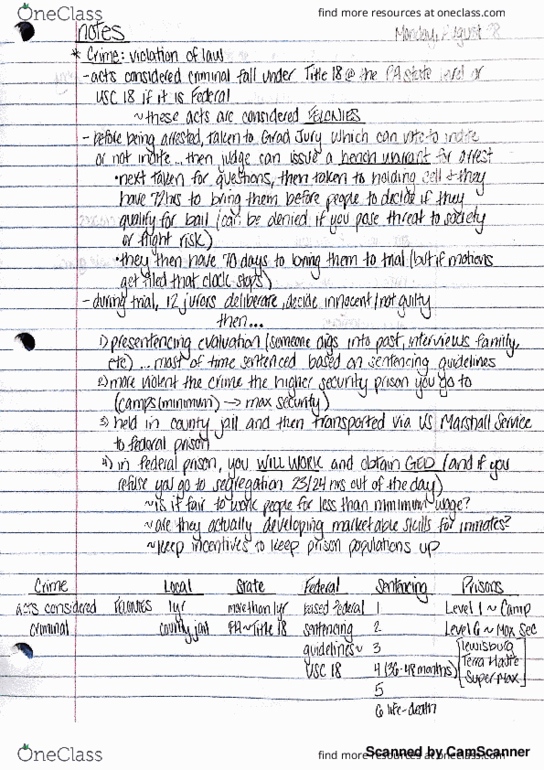 OneClass
find more resources at oneclass.com
notes
Monday, August 28
* Crime: violation of law
- acts considered criminal fall under Title 18 @ the PA state level or
USC 18 if it is Federal
~ these acts are considered FELONIES
- before being arrested, taken to Grad Jury which can vote to indite
or not indite... then judge can issue a bench warrant for arrest
• next taken for questions, then taken to holding cell + they
have 72 hrs to bring them before people to decide if they
qualify for bail (can be denied if you pose threat to society
or flight risk)
• they then have 70 days to bring them to trial (but if motions
get filed that clock stops)
- during trial, 12 jurors deliberate, decide innocent/not guilty
then...
1) presentencing evaluation (someone digs into past, interviews family,
etc) ... most of time sentenced based on sentencing guidelines
2) more violent the crime the higher security prison you go to
(camps (minimum) → max security)
3) held in county jail and then transported via US Marshall Service
to federal prison
4) in federal prison, you WILL WORK and obtain GED (and if you
refuse you go to segregation 23/24 hrs out of the day)
~ is it fair to work people for less than minimum wage?
~ are they actually developing marketable skills for inmates?
~ keep incentives to keep prison populations up
Crime Local State Federal Sentencing Prisons
acts considered FELONIES 1yr more than 1yr based Federal 1 Level 1 ~ Camp
criminal county jail PA ~ Title 18 sentencing 2 Level 6 ~ Max Sec
guidelines ~ 3 Lewisburg
USC 18 4 (36-48 months) Terra Haute
5 Super Max
6 life-death
OneClass
find more resources at oneclass.com
Scanned by CamScanner